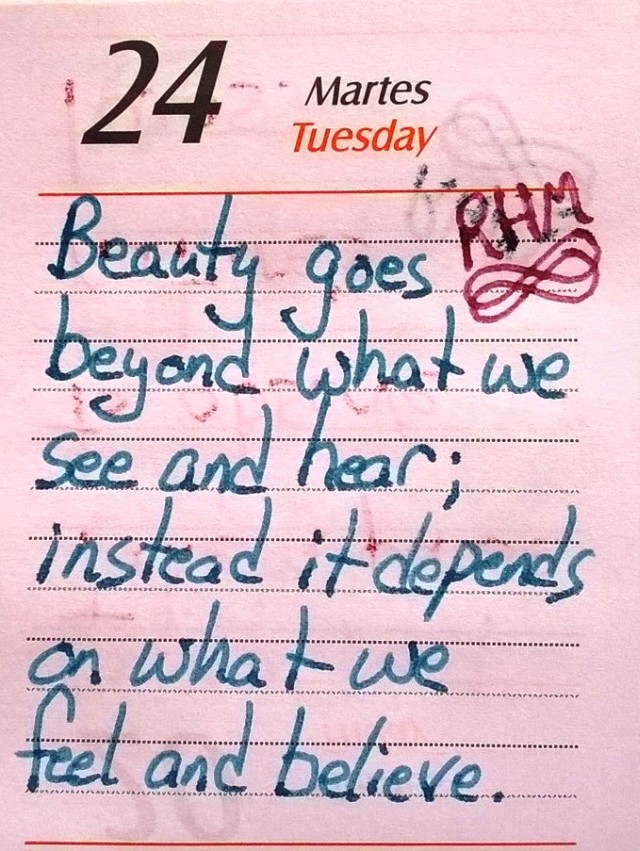 24
Martes
Tuesday
RHM
Beauty goes
beyond what we
see and hear;
instead it depends
on what we
feel and believe.